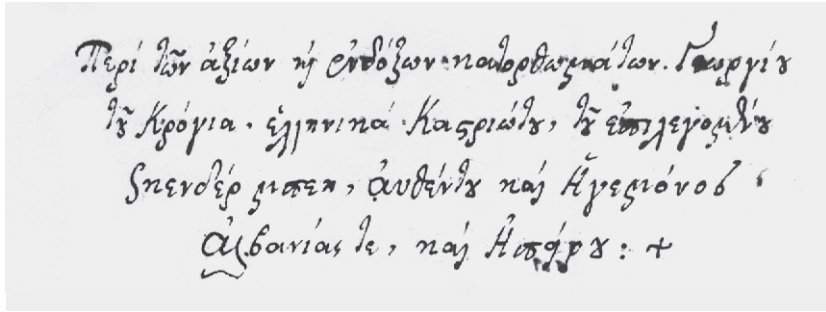 Περὶ τῶν ἀξίων κỳ ἐνδόξων κατορθωμάτων. Γεωργίου
τοῦ Κρόγια. ἑλληνικά. Καστριώτου, τοῦ ἐπιλεγομένου
Σκενδέρ μπεη, ἀυθέντου καὶ Ἡγεμόνος
ἀλβανίας τε, καὶ Ἠπήρου: +